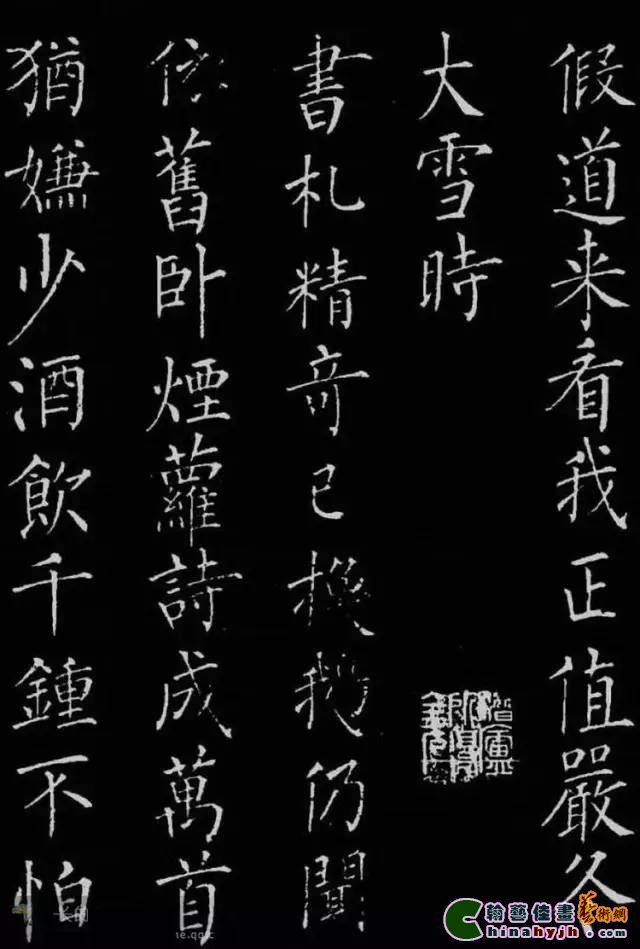 假道来看我正值嚴冬
大雪時
書札精奇已換鵝仍聞
依舊卧煙蘿詩成萬首
猶嫌少酒飲千鍾不怕
翰藝佳畫藝術網
Chinahyjh.com